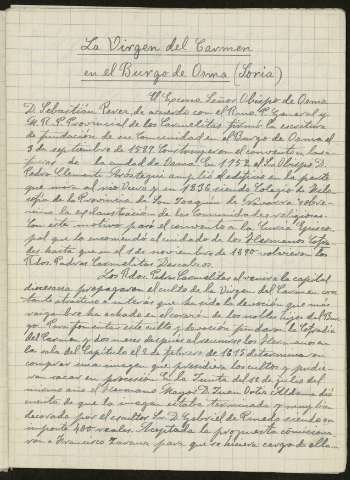 La Virgen del Carmen
en el Burgo de Osma (Soria)
El Excmo Señor Obispo de Osma
D. Sebastián Perer, de acuerdo con el Rmo. P. General y
M. R. P. Provincial de los Carmelitas firmó la escritura
de fundación de una Comunidad en el Burgo de Osma el
5 de septiembre de 1589. Construyeron el convento los
de la ciudad de Osma. En 1752 el Sr Obispo D.
Pedro Clemente Arostegui amplió el edificio en la parte
que mira al río Ucero y en 1836 siendo Colegio de Filo
sofía de la Provincia de San Joaquín de Navarra sobre
vino la exclaustración de las Comunidades religiosas.
Con este motivo pasó el convento a la Curia Episco
pal que lo encomendó al cuidado de los Hermanos
hasta que en el de noviembre de 1890 volvieron los
Rdos. Padres Carmelitas Descalzos.
Los Rdos. Padres Carmelitas al venir a la capital
diocesana propagaron el culto de la Virgen del Carmen con
tanto que ha sido la devoción que más
arraigo ha echado en el corazón de los nobles hijos del Bur
go. Para fomentar este culto y devoción fundaron la Cofradía
del Carmen y dos meses después al reunirse los Hermanos en
la sala del Capítulo el 2 de febrero de 1675 determinaron
comprar una imagen que presidiera los cultos y pudie
ran sacar en procesión. En la Junta del 16 de julio del
mismo año el Hermano Mayor D. Juan Ortiz Aldama dió
cuenta de que la imagen estaba terminada y muy bien
decorada por el escultor Sr. D. Gabriel de Pineda siendo su
importe 480 reales. Aceptada la propuesta comisiona
ron a Francisco Zarauz para que se hiciera cargo de ella...